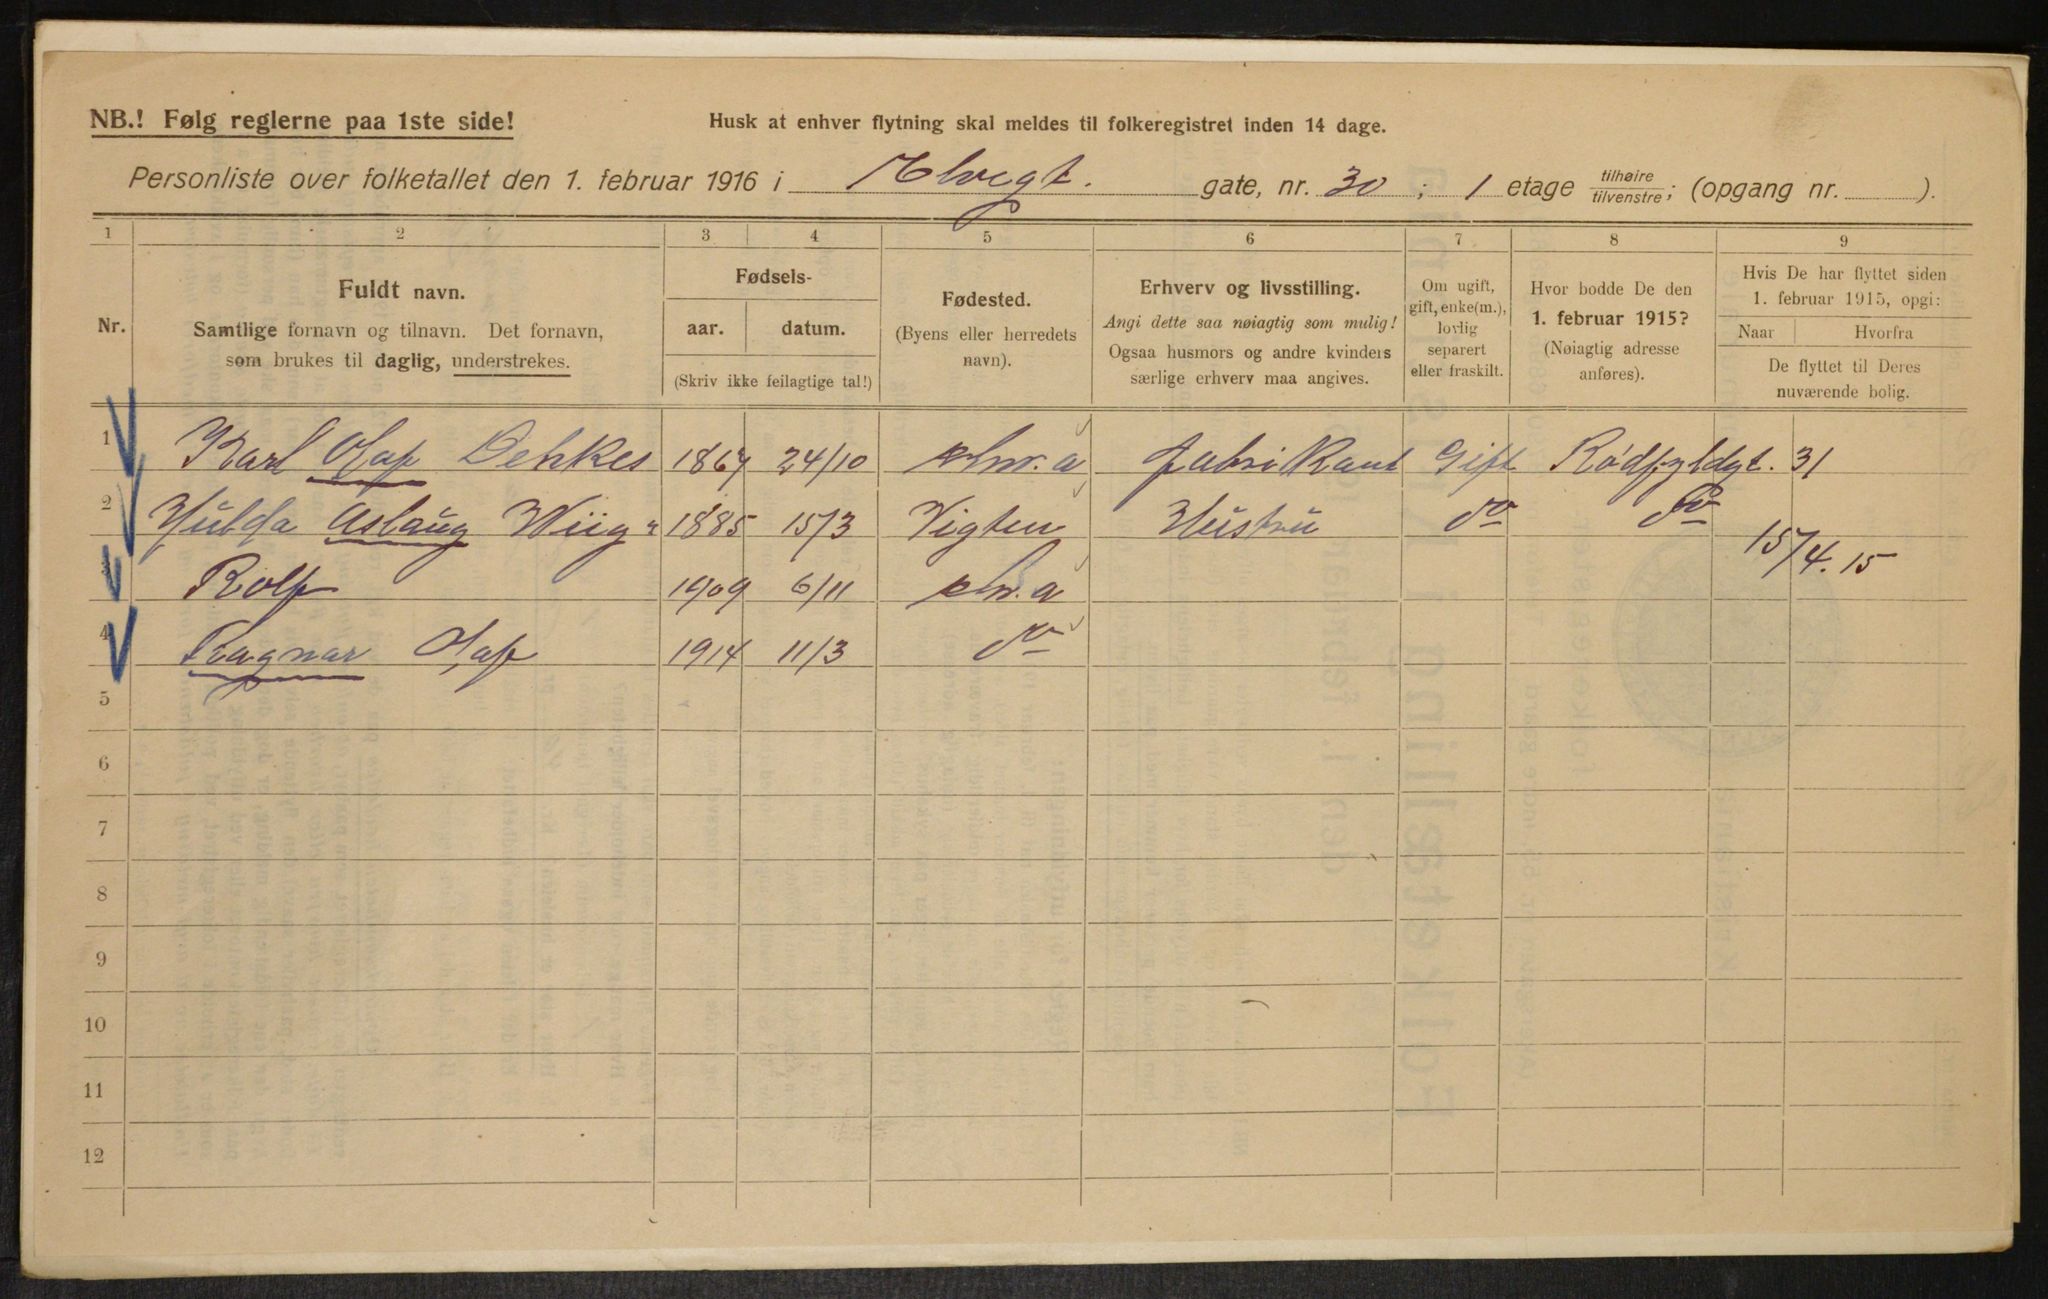 NB.! Følg reglerne paa 1ste side!
Husk at enhver flytning skal meldes til folkeregistret inden 14 dage.
Personliste over folketallet den 1. februar 1916 i Elvegt. gate, nr. 30 ; 1 etage tilhøire/tilvenstre; (opgang nr. ).
1 2 3 4 5 6 7 8 9
Nr.
Fuldt navn.
Samtlige fornavn og tilnavn. Det fornavn,
som brukes til daglig, understrekes.
Fødsels-
aar. datum.
(Skriv ikke feilagtige tal!)
Fødested.
(Byens eller herredets
navn).
Erhverv og livsstilling.
Angi dette saa nøiagtig som mulig!
Ogsaa husmors og andre kvinders
særlige erhverv maa angives.
Om ugift,
gift, enke(m.),
lovlig
separert
eller fraskilt.
Hvor bodde De den
1. februar 1915?
(Nøiagtig adresse
anføres).
Hvis De har flyttet siden
1. februar 1915, opgi:
Naar Hvorfra
De flyttet til Deres
nuværende bolig.
1 Karl Olaf Dehkes 1867 24/10 Kr.a Fabrikant Gift Rødfyldgt. 31
2 Hulda Aslaug Wiig " 1885 15/3 Vigten Hustru do do
15/4. 15
3 Rolf 1909 6/11 Kr.a
4 Ragnar Olaf 1914 11/3 do
5
6
7
8
9
10
11
12